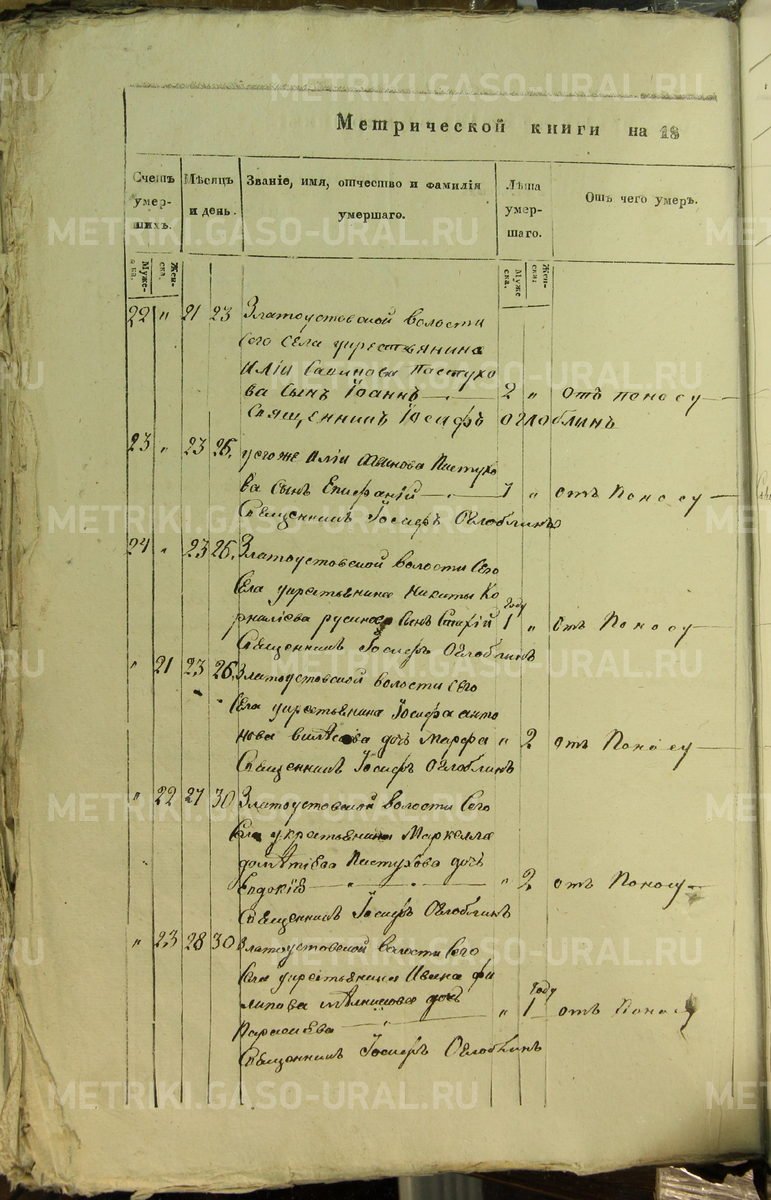 Метрической книги на 18
Счетъ умершихъ.
Мужеска.
Женска.
Мѣсяцъ и день.
Званіе, имя, отчество и фамилія умершаго.
Лѣта умершаго.
Мужеска.
Женска.
Отъ чего умеръ.
22 " 21 23 Златоустовской волости
сего села укрестьянина
Иліи Савинова Пастухо
ва сынъ Іоаннъ 2 " отъ поносу
Священникъ Іосифъ Оглоблинъ
23 " 23 25. утогоже Иліи Пастухо
ва сынъ Епифаній 7 " отъ поносу
Священникъ Іосифъ Оглоблинъ
24 " 23 25. Златоустовской волости сего
села укрестьянина Никиты Ко
рниліева сынъ 1 году " отъ поносу
Священникъ Іосифъ Оглоблинъ
" 21 23 26. Златоустовской волости сего
села укрестьянина Іосифа анто
нова дочь Марфа " 2 отъ поносу
Священникъ Іосифъ Оглоблинъ
" 22 27 30 Златоустовской волости сего
села укрестьянина Маркелла
Пастухова дочь
Евдокія " 2 отъ поносу
Священникъ Іосифъ Оглоблинъ
" 23 28 30 Златоустовской волости сего
села укрестьянина Ивана фи
липова дочь
Параскева " 1 году отъ поносу
Священникъ Іосифъ Оглоблинъ
METRIKI.GASO-URAL.RU